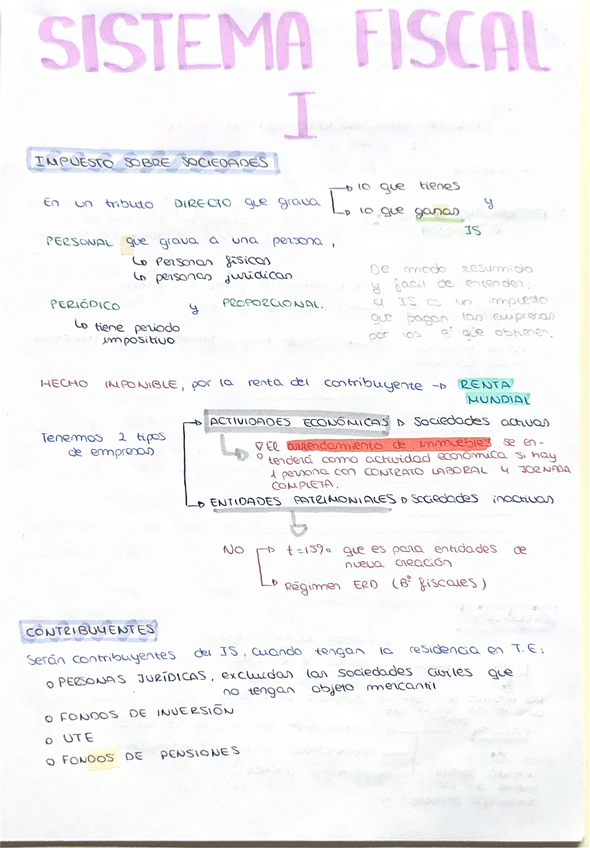 SISTEMA FISCAL
I
IMPUESTO SOBRE SOCIEDADES
En un tributo DIRECTO que grava → lo que tienes
→ lo que ganas y
IS
PERSONAL que grava a una persona,
↳ Personas físicas
↳ personas jurídicas
PERIÓDICO y PROPORCIONAL.
↳ tiene periodo
impositivo
De modo resumido
y facil de entender,
el IS es un impuesto
que pagan las empresas
por los Bº que obtienen.
HECHO IMPONIBLE, por la renta del contribuyente → RENTA
MUNDIAL
Tenemos 2 tipos
de empresas
ACTIVIDADES ECONÓMICAS ▷ Sociedades activas
El arrendamiento de inmuebles se en-
tenderá como actividad económica si hay
1 persona con CONTRATO LABORAL y JORNADA
COMPLETA.
ENTIDADES PATRIMONIALES ▷ Sociedades inactivas
NO → t=15% que es para entidades de
nueva creación
→ Régimen ERD (Bº fiscales)
CONTRIBUYENTES
Serán contribuyentes del IS, cuando tengan la residencia en T.E:
o PERSONAS JURÍDICAS, excluidas las sociedades civiles que
no tengan objeto mercantil
o FONDOS DE INVERSIÓN
o UTE
o FONDOS DE PENSIONES